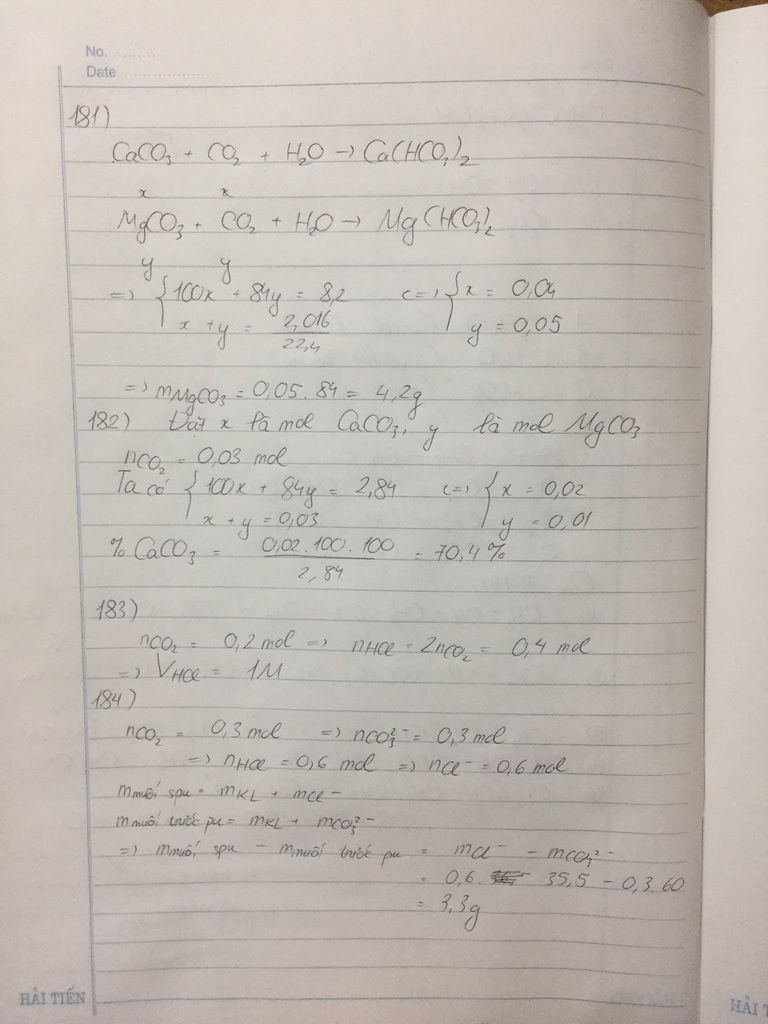 No. ............
Date ........................
181)
CaCO₃ + CO₂ + H₂O → Ca(HCO₃)₂
x x
MgCO₃ + CO₂ + H₂O → Mg(HCO₃)₂
y y
=> { 100x + 84y = 8,2 <=> { x = 0,04
x + y = 2,016 / 22,4 y = 0,05
=> mMgCO₃ = 0,05 . 84 = 4,2g
182) Đặt x là mol CaCO₃, y là mol MgCO₃
nCO₂ = 0,03 mol
Ta có { 100x + 84y = 2,84 <=> { x = 0,02
x + y = 0,03 y = 0,01
% CaCO₃ = 0,02 . 100 . 100 / 2,84 = 70,4 %
183)
nCO₂ = 0,2 mol => nHCl = 2nCO₂ = 0,4 mol
=> VHCl = 1M
184)
nCO₂ = 0,3 mol => nCO₃²⁻ = 0,3 mol
=> nHCl = 0,6 mol => nCl⁻ = 0,6 mol
mmuối spu = mKL + mCl⁻
mmuối trước pu = mKL + mCO₃²⁻
=> mmuối spu - mmuối trước pu = mCl⁻ - mCO₃²⁻
= 0,6 . 35,5 - 0,3 . 60
= 3,3g
HẢI TIẾN
HẢI T